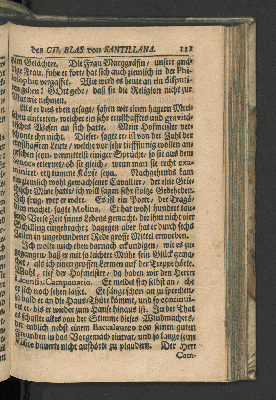 des GIL BLAS von SANTILLANA. 111
zum Gelächter. Die Frau Marggräfin, unser gnä-
dige Frau, fuhr er fort, hat sich auch ziemlich in der Phi-
losophie vergafft. Wie wird es heute an ein Disputi-
ren gehen! GOtt gebe, daß sie die Religion nicht zur
Materie nehmen.
Als er dies eben gesagt, sahen wir einen hagern Men-
schen eintreten, welcher ein sehr ernsthafftes und gravitä-
tisches Wesen an sich hatte. Mein Hofmeister ver-
schonte ihn nicht. Dieser, sagte er, ist von der Zahl der
ernsthafften Leute, welche vor sehr tieffsinnig wollen an-
gesehen seyn, vermittelst einiger Sprüche, so sie aus dem
Seneca erlernet, ob sie gleich, wenn man sie recht exa-
miniret, arg dumme Köpfe seyn. Nachgehends kam
ein ziemlich wohl gewachsener Cavallier, der eine Grie-
chische Mine hatte, ich will sagen sehr stoltze Geberden.
Ich frug, wer er wäre. Es ist ein Poete, der Tragö-
dien machet, sagte Molina. Er hat wohl hundert tau-
send Verse Zeit seines Lebens gemacht, die ihm nicht vier
Schilling eingebracht; dagegen aber hat er durch sechs
Zeilen in ungebundener Rede große Mittel erworben.
Ich wollte mich eben darnach erkundigen, wie es zu-
gegangen, daß er mit so leichter Mühe sein Glück gemacht,
als ich einen großen Lermen auf der Treppe hörte.
Wohl, rief der Hofmeister, da haben wir den Herrn
Licentiat Campanario. Er meldet sich selbst an, ehe
er sich noch sehen lässet. Er fängt schon an zu sprechen,
so bald er an die Haus-Thüre kömmt, und so continui-
ret er, bis er wieder zum Hause hinaus ist. In der That
es schallete alles von der Stimme dieses Windmachers,
der endlich nebst einem Baccalaureo von seinen guten
Freunden in das Vorgemach eintrat, und so lange seine
Visite dauerte nicht aufhörte zu plaudern. Der Herr
Cam-